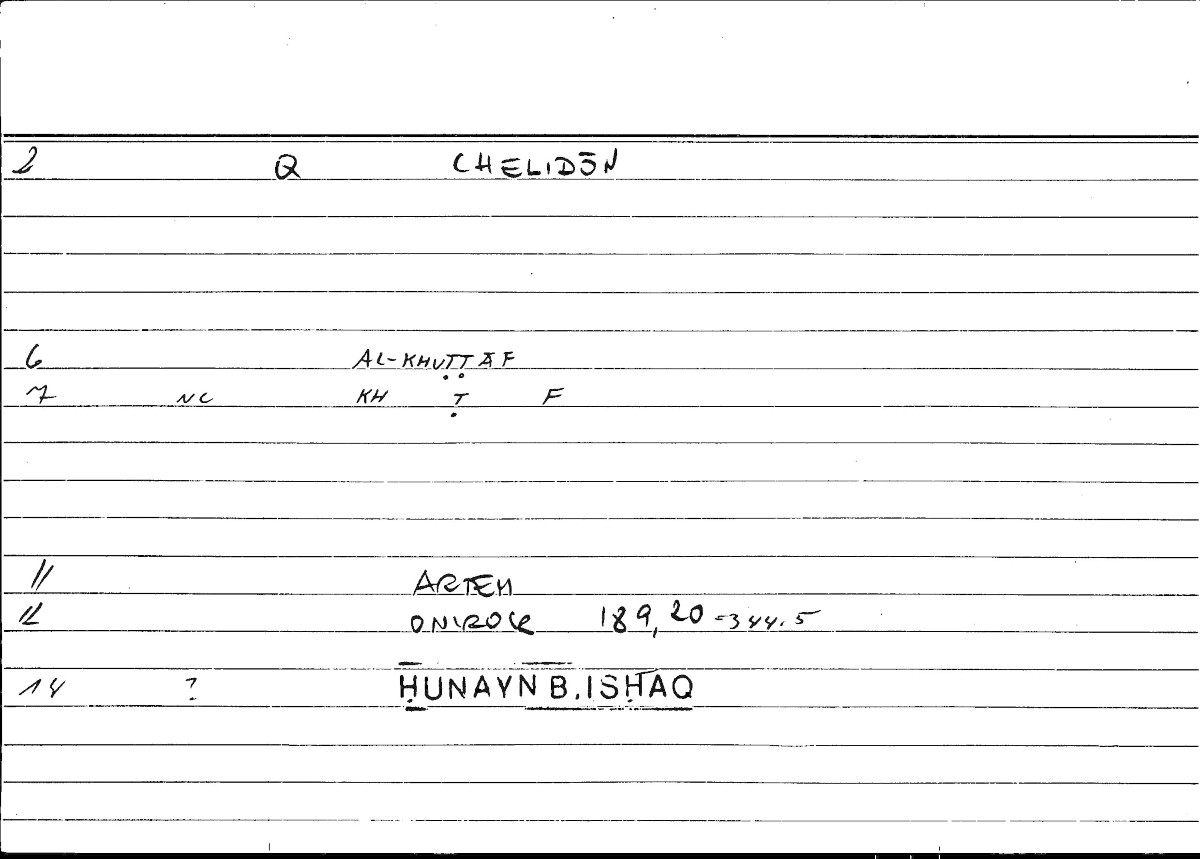 2 Q CHELIDŌN
6 AL-KHUṬṬĀF
7 NC KH Ṭ F
11 ARTEM
12 ONIROCR 189,20 =344.5
14 ? ḤUNAYN B. ISḤĀQ